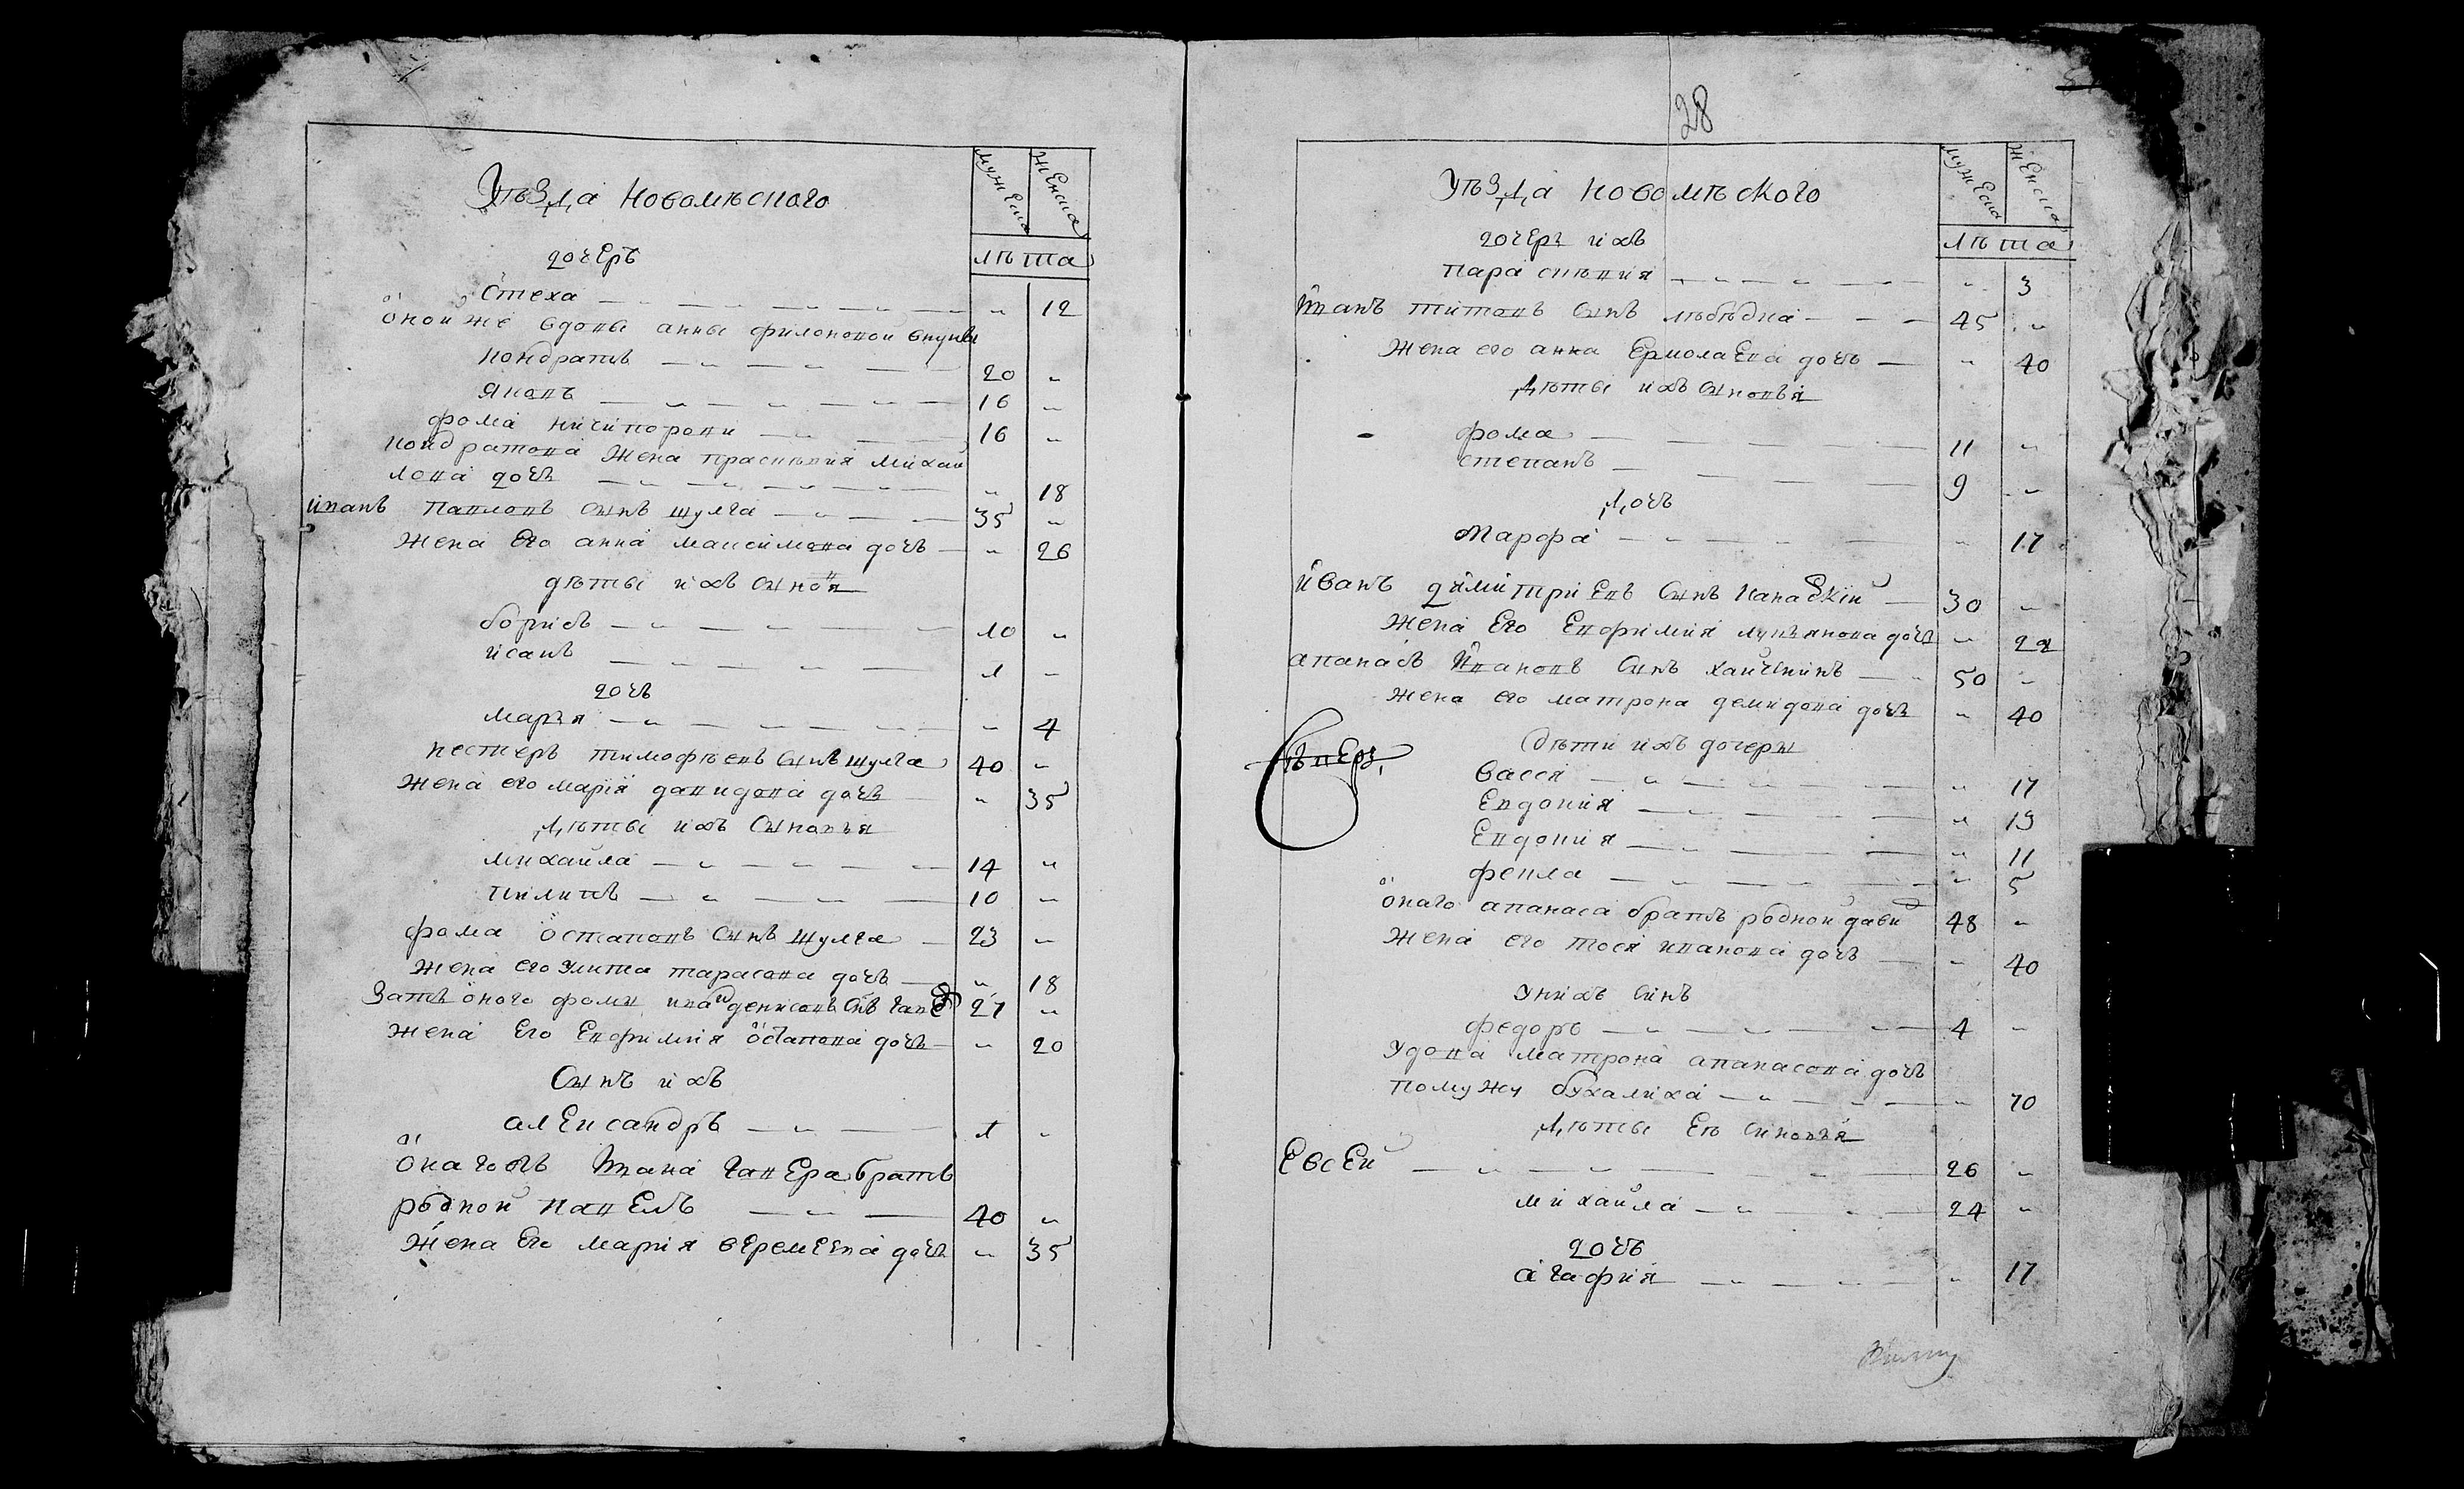 Уѣзда Новомѣского
мужеска
женска
лѣта
дочеръ
Стеха — „ 12
оной же вдовы анны филоновой внуки
кондратъ — 20 „
яковъ — 16 „
фома ничипорови — 16 „
кондратова жена прасковия михай
лова дочь — „ 18
иванъ павловъ сынъ шулга — 35 „
жена его анна максимова дочь — „ 26
дѣты ихъ сынов̾я
борисъ — 10 „
исакъ — 1 „
дочъ
марья — „ 4
нестеръ тимофѣевъ сынъ шулга 40 „
жена его марія давидова дочь — „ 35
дѣты ихъ сыновья
михайла — 14 „
пилипъ — 10 „
фома остаповъ сынъ шулга — 23 „
жена его улита тарасова дочь — „ 18
Зять оного фомы иван денисовъ снъ 27 „
жена его евфимия остапова дочь — „ 20
Сынъ ихъ
александръ — 1 „
онагожъ ивана гавера братъ
родной павелъ — 40 „
жена его мария веремеева дочь „ 35
28
Уѣзда новомѣского
мужеска
женска
лѣта
дочеръ ихъ
парасковия — „ 3
иванъ титовъ сынъ лѣбѣдка — 45 „
жена его анна ермолаева дочь — „ 40
дѣты ихъ сыновья
фома — 11 „
степанъ — 9 „
дочъ
марфа — „ 17
иванъ димитриевъ сынъ — 30 „
жена его евфимия лукянова дочь „ 22
апанасъ ивановъ сынъ хайчинъ — 50 „
жена его матрона демидова дочь „ 40
дѣти ихъ дочеры
васся — „ 17
евдокия — „ 13
евдокия — „ 11
фекла — „ 5
онаго апанаса братъ родной давид 48 „
жена его тося иванова дочь — „ 40
уних сынъ
федоръ — 4 „
удова матрона апанасова дочь
помужу бухалиха — „ 70
дѣты еѣ сыновья
Евсей — 26 „
михайла — 24 „
дочъ
агафия — „ 17